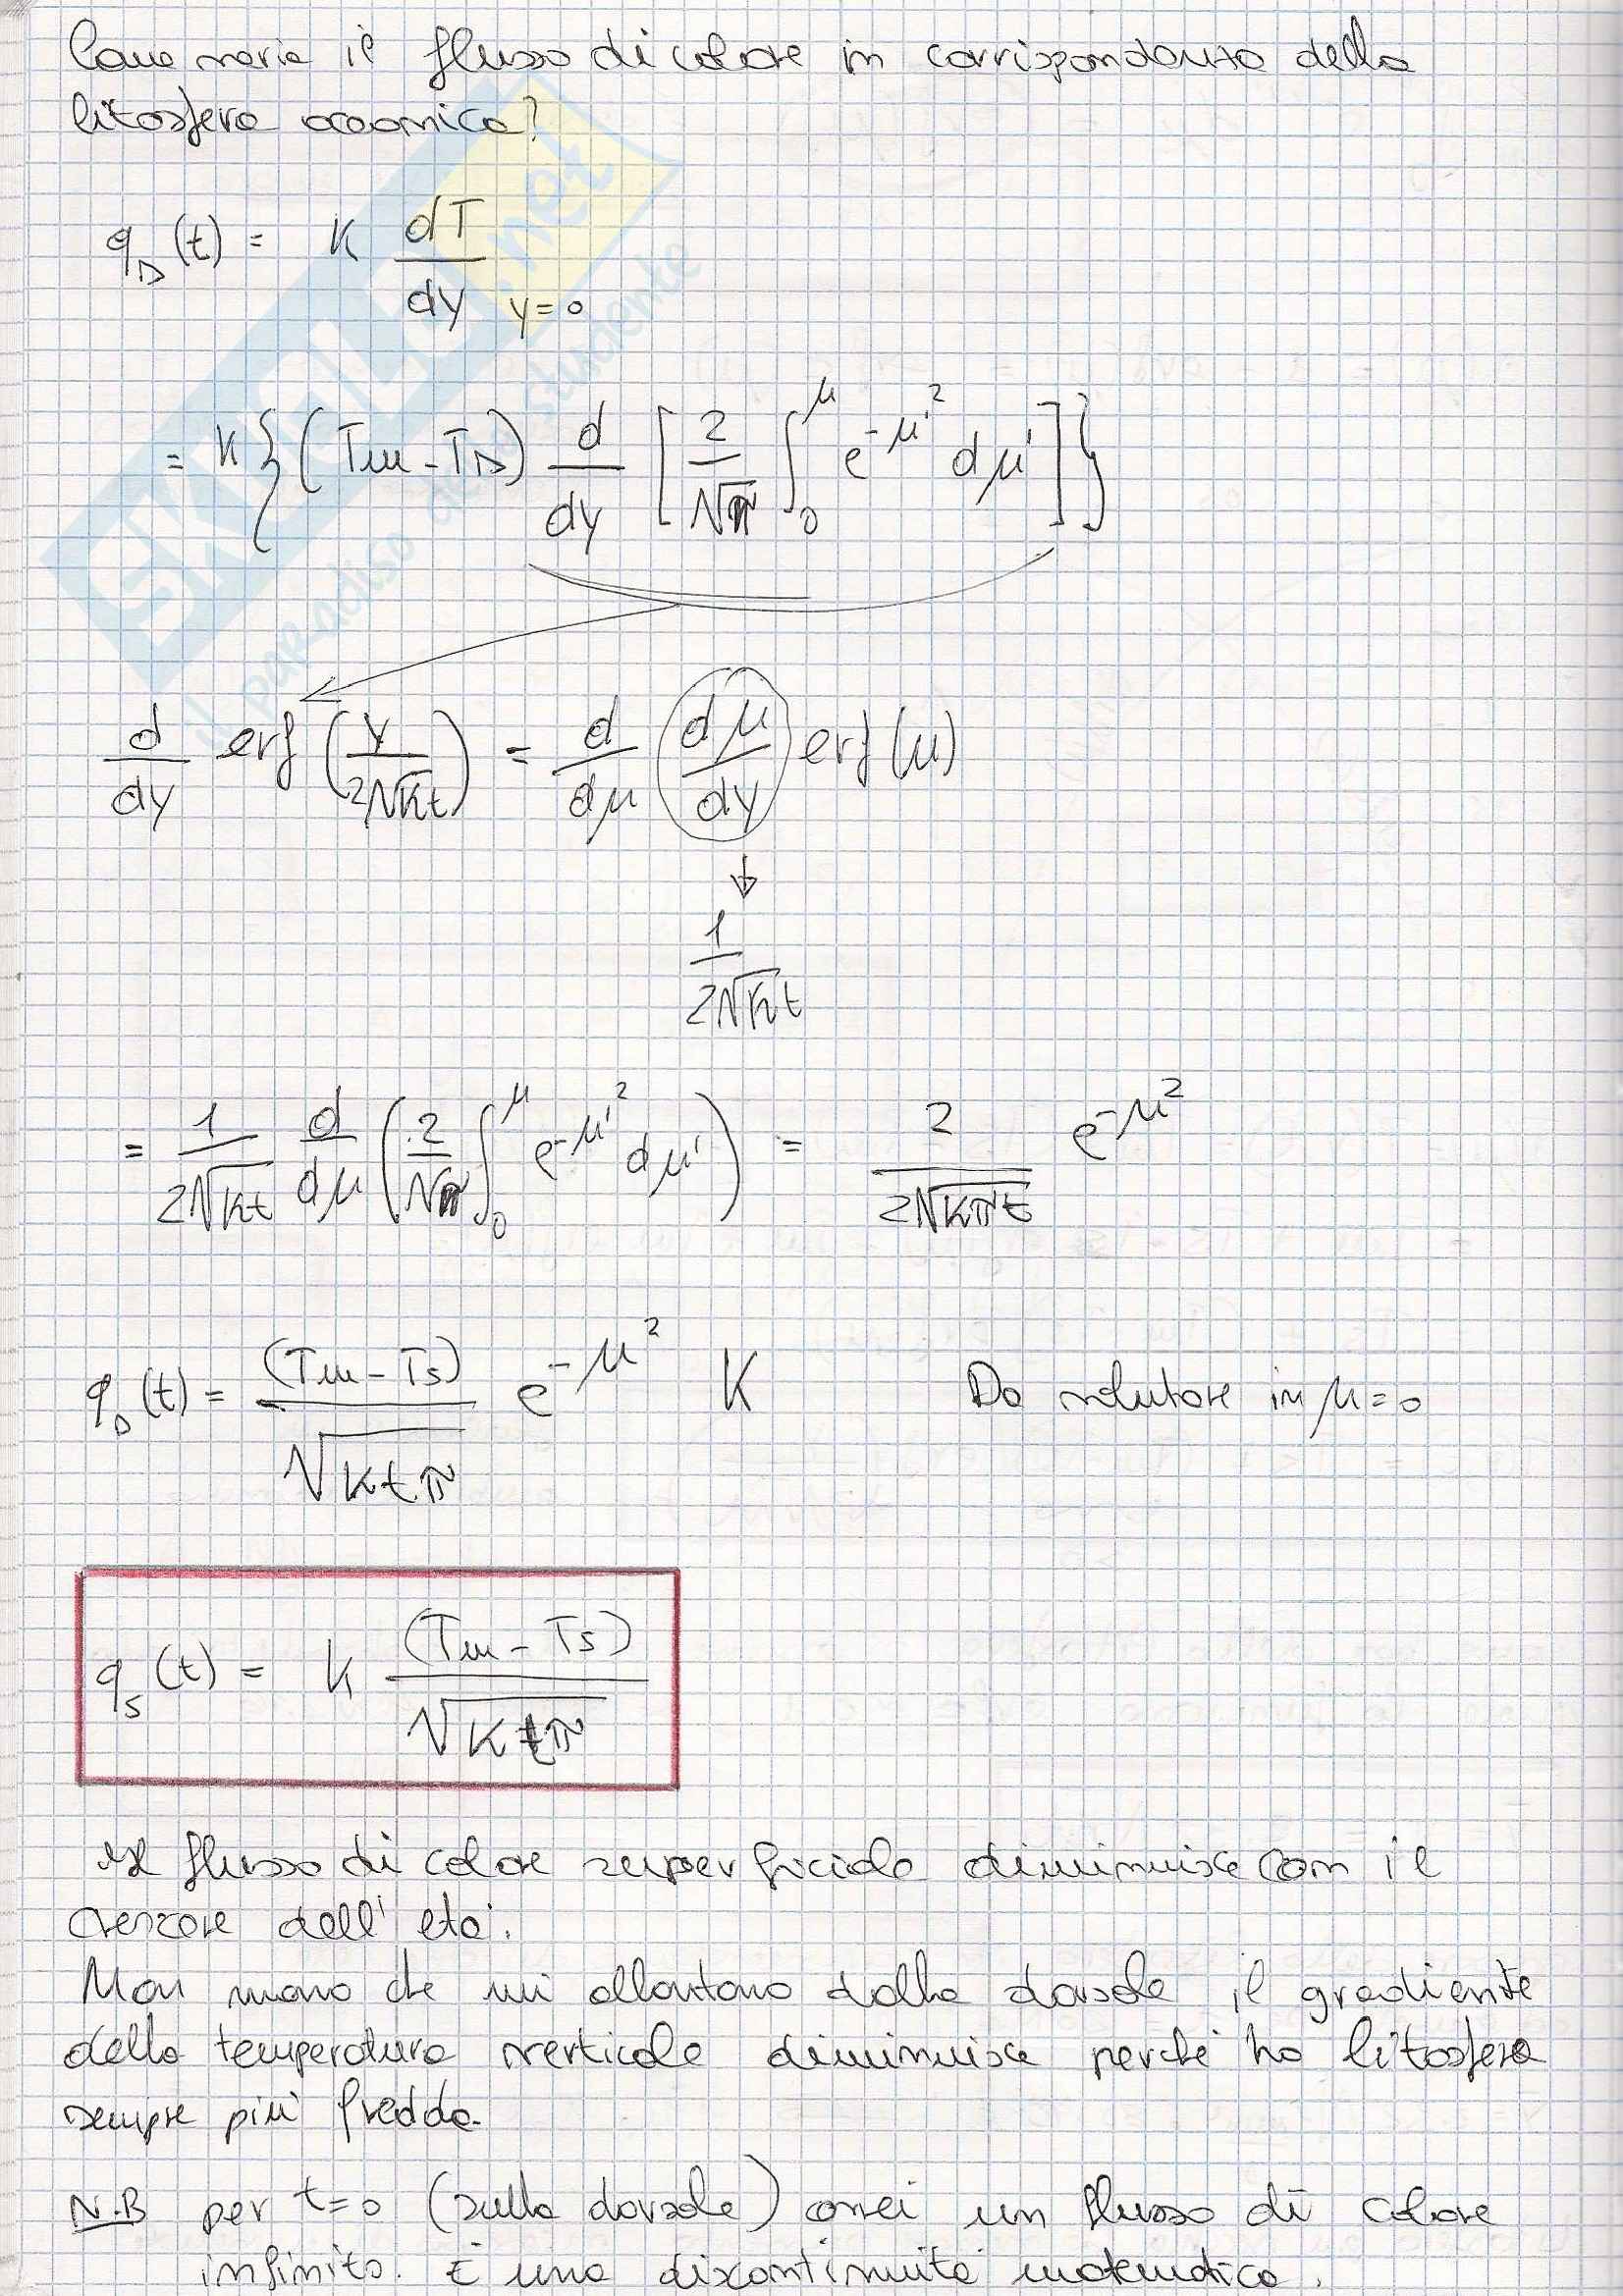 Come varia il flusso di calore in corrispondenza della
litosfera oceanica?
q_s(t) = K dT/dy y=0
= K{(Tm-Ts) d/dy [2/√π ∫₀^μ e^-μ'² dμ']}
d/dy erf(y/2√Kt) = d/dμ (dμ/dy) erf(μ)
↓
1/2√Kt
= 1/2√Kt d/dμ (2/√π ∫₀^μ e^-μ'² dμ') = 2/2√Kπt e^-μ²
q_s(t) = (Tm-Ts)/√Ktπ e^-μ² K Da valutare in μ=0
q_s(t) = K (Tm-Ts)/√Ktπ
Il flusso di calore superficiale diminuisce con il
crescere dell'età.
Man mano che mi allontano dalla dorsale il gradiente
della temperatura verticale diminuisce perché ho litosfera
sempre più fredda.
N.B per t=0 (sulla dorsale) avrei un flusso di calore
infinito. È una discontinuità matematica.
SKUOLA.net
il paradiso dello studente